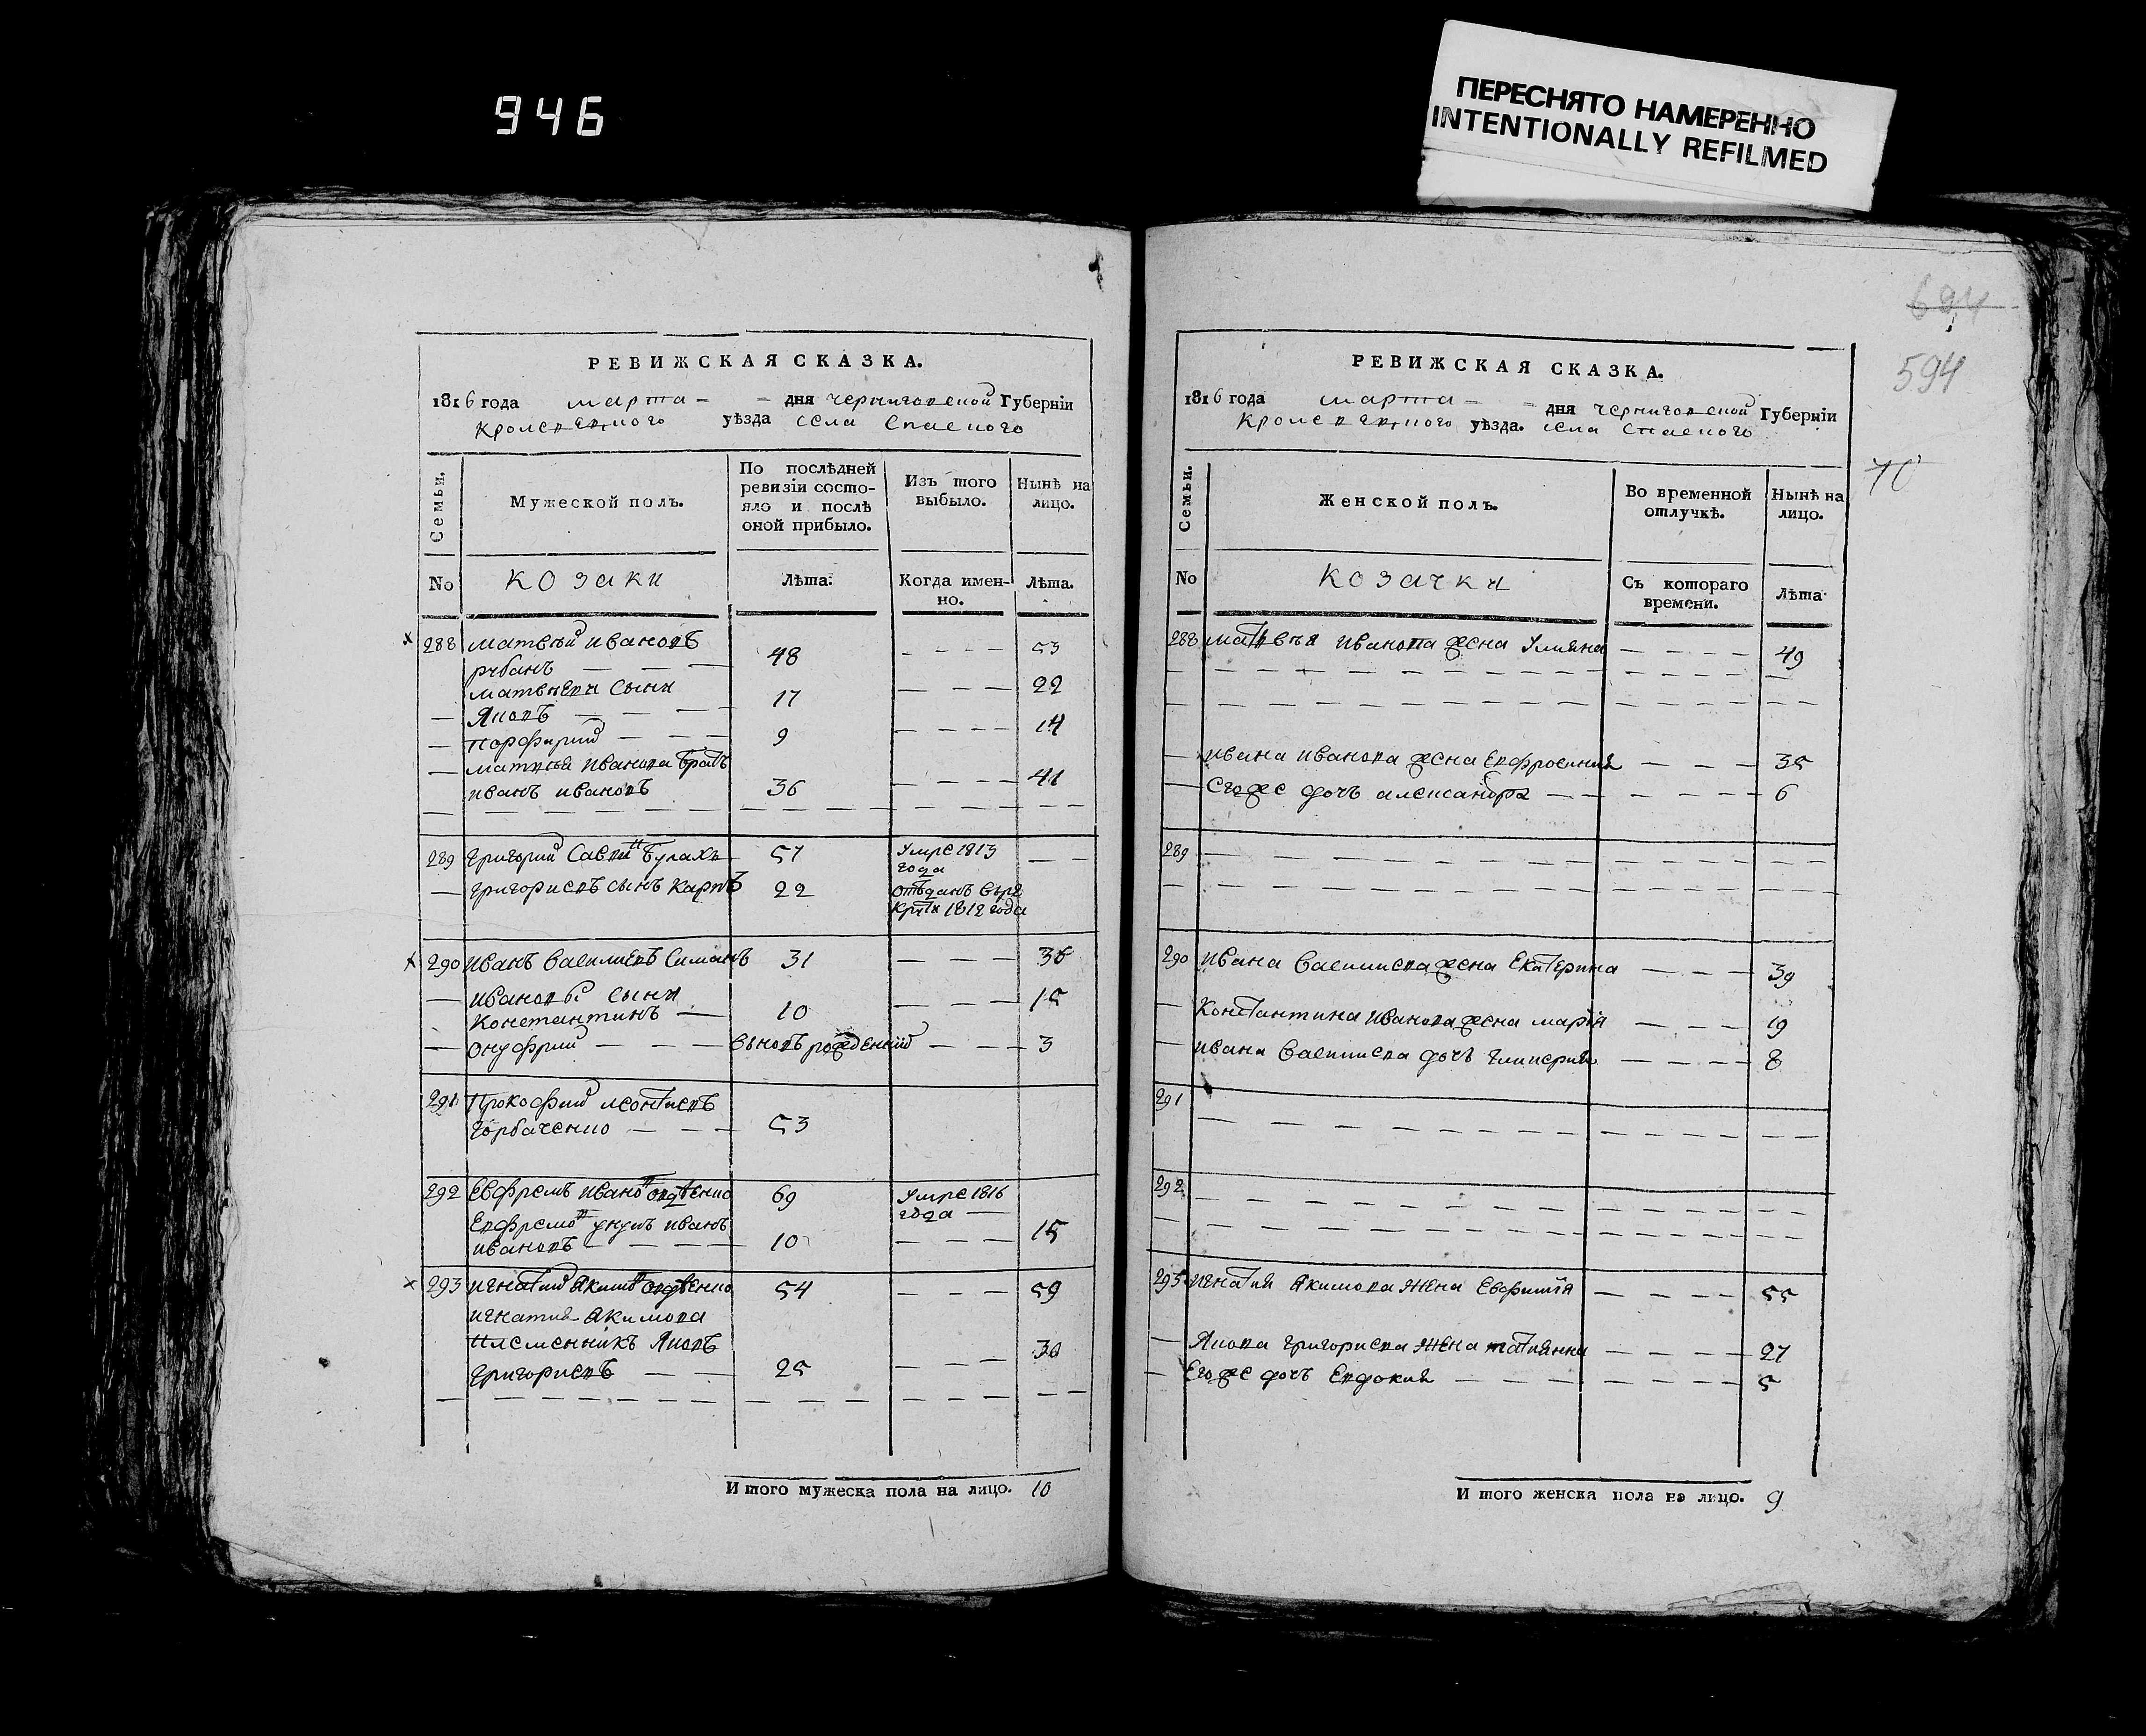 946
ПЕРЕСНЯТО НАМЕРЕННО
INTENTIONALLY REFILMED
РЕВИЖСКАЯ СКАЗКА.
1816 года марта – – дня черниговской Губерніи
Кролевецкого уѣзда села Спаского
Семьи. Мужеской полъ. По послѣдней ревизіи состояло и послѣ оной прибыло. Изъ того выбыло. Нынѣ на лицо.
No козаки Лѣта. Когда именно. Лѣта.
288 матвѣй ивановъ
рубанъ 48 53
матвѣевы сыны
Яковъ 17 22
порфирий 9 14
матвѣя иванова братъ
иванъ ивановъ 36 41
289 григорий Савин Булахъ 51 Умре 1813 года
григориевъ сынъ карпъ 22 отъданъ въ рекруты 1812 года
290 иванъ василиевъ Симанъ 31 36
ивановы сыны
Константинъ 10 15
онуфрий вновь рожденный 3
291 Прокофий леонтиевъ
горбаченко 53
292 Евфремъ ивано 69 Умре 1816 года
Евфремов унукъ иванъ
ивановъ 10 15
293 игнатий Якимов 54 59
игнатия Якимова
племенникъ Яковъ
григориевъ 25 30
И того мужеска пола на лицо. 10
694
594
70
РЕВИЖСКАЯ СКАЗКА.
1816 года марта – – дня черниговской Губерніи
Кролевецкого уѣзда. села Спаского
Семьи. Женской полъ. Во временной отлучкѣ. Нынѣ на лицо.
No козачки Съ котораго времени. Лѣта
288 матвѣя иванова жена Улияна 49
ивана иванова жена Евфросиния 35
Егоже дочь александра 6
289
290 ивана василиева жена Екатерина 39
Константина иванова жена мария 19
ивана василиева дочь гликерия 8
291
292
293 игнатия Якимова жена Евфимия 55
Якова григориева жена татиянна 27
Егоже дочь Евдокия 5
И того женска пола на лицо. 9